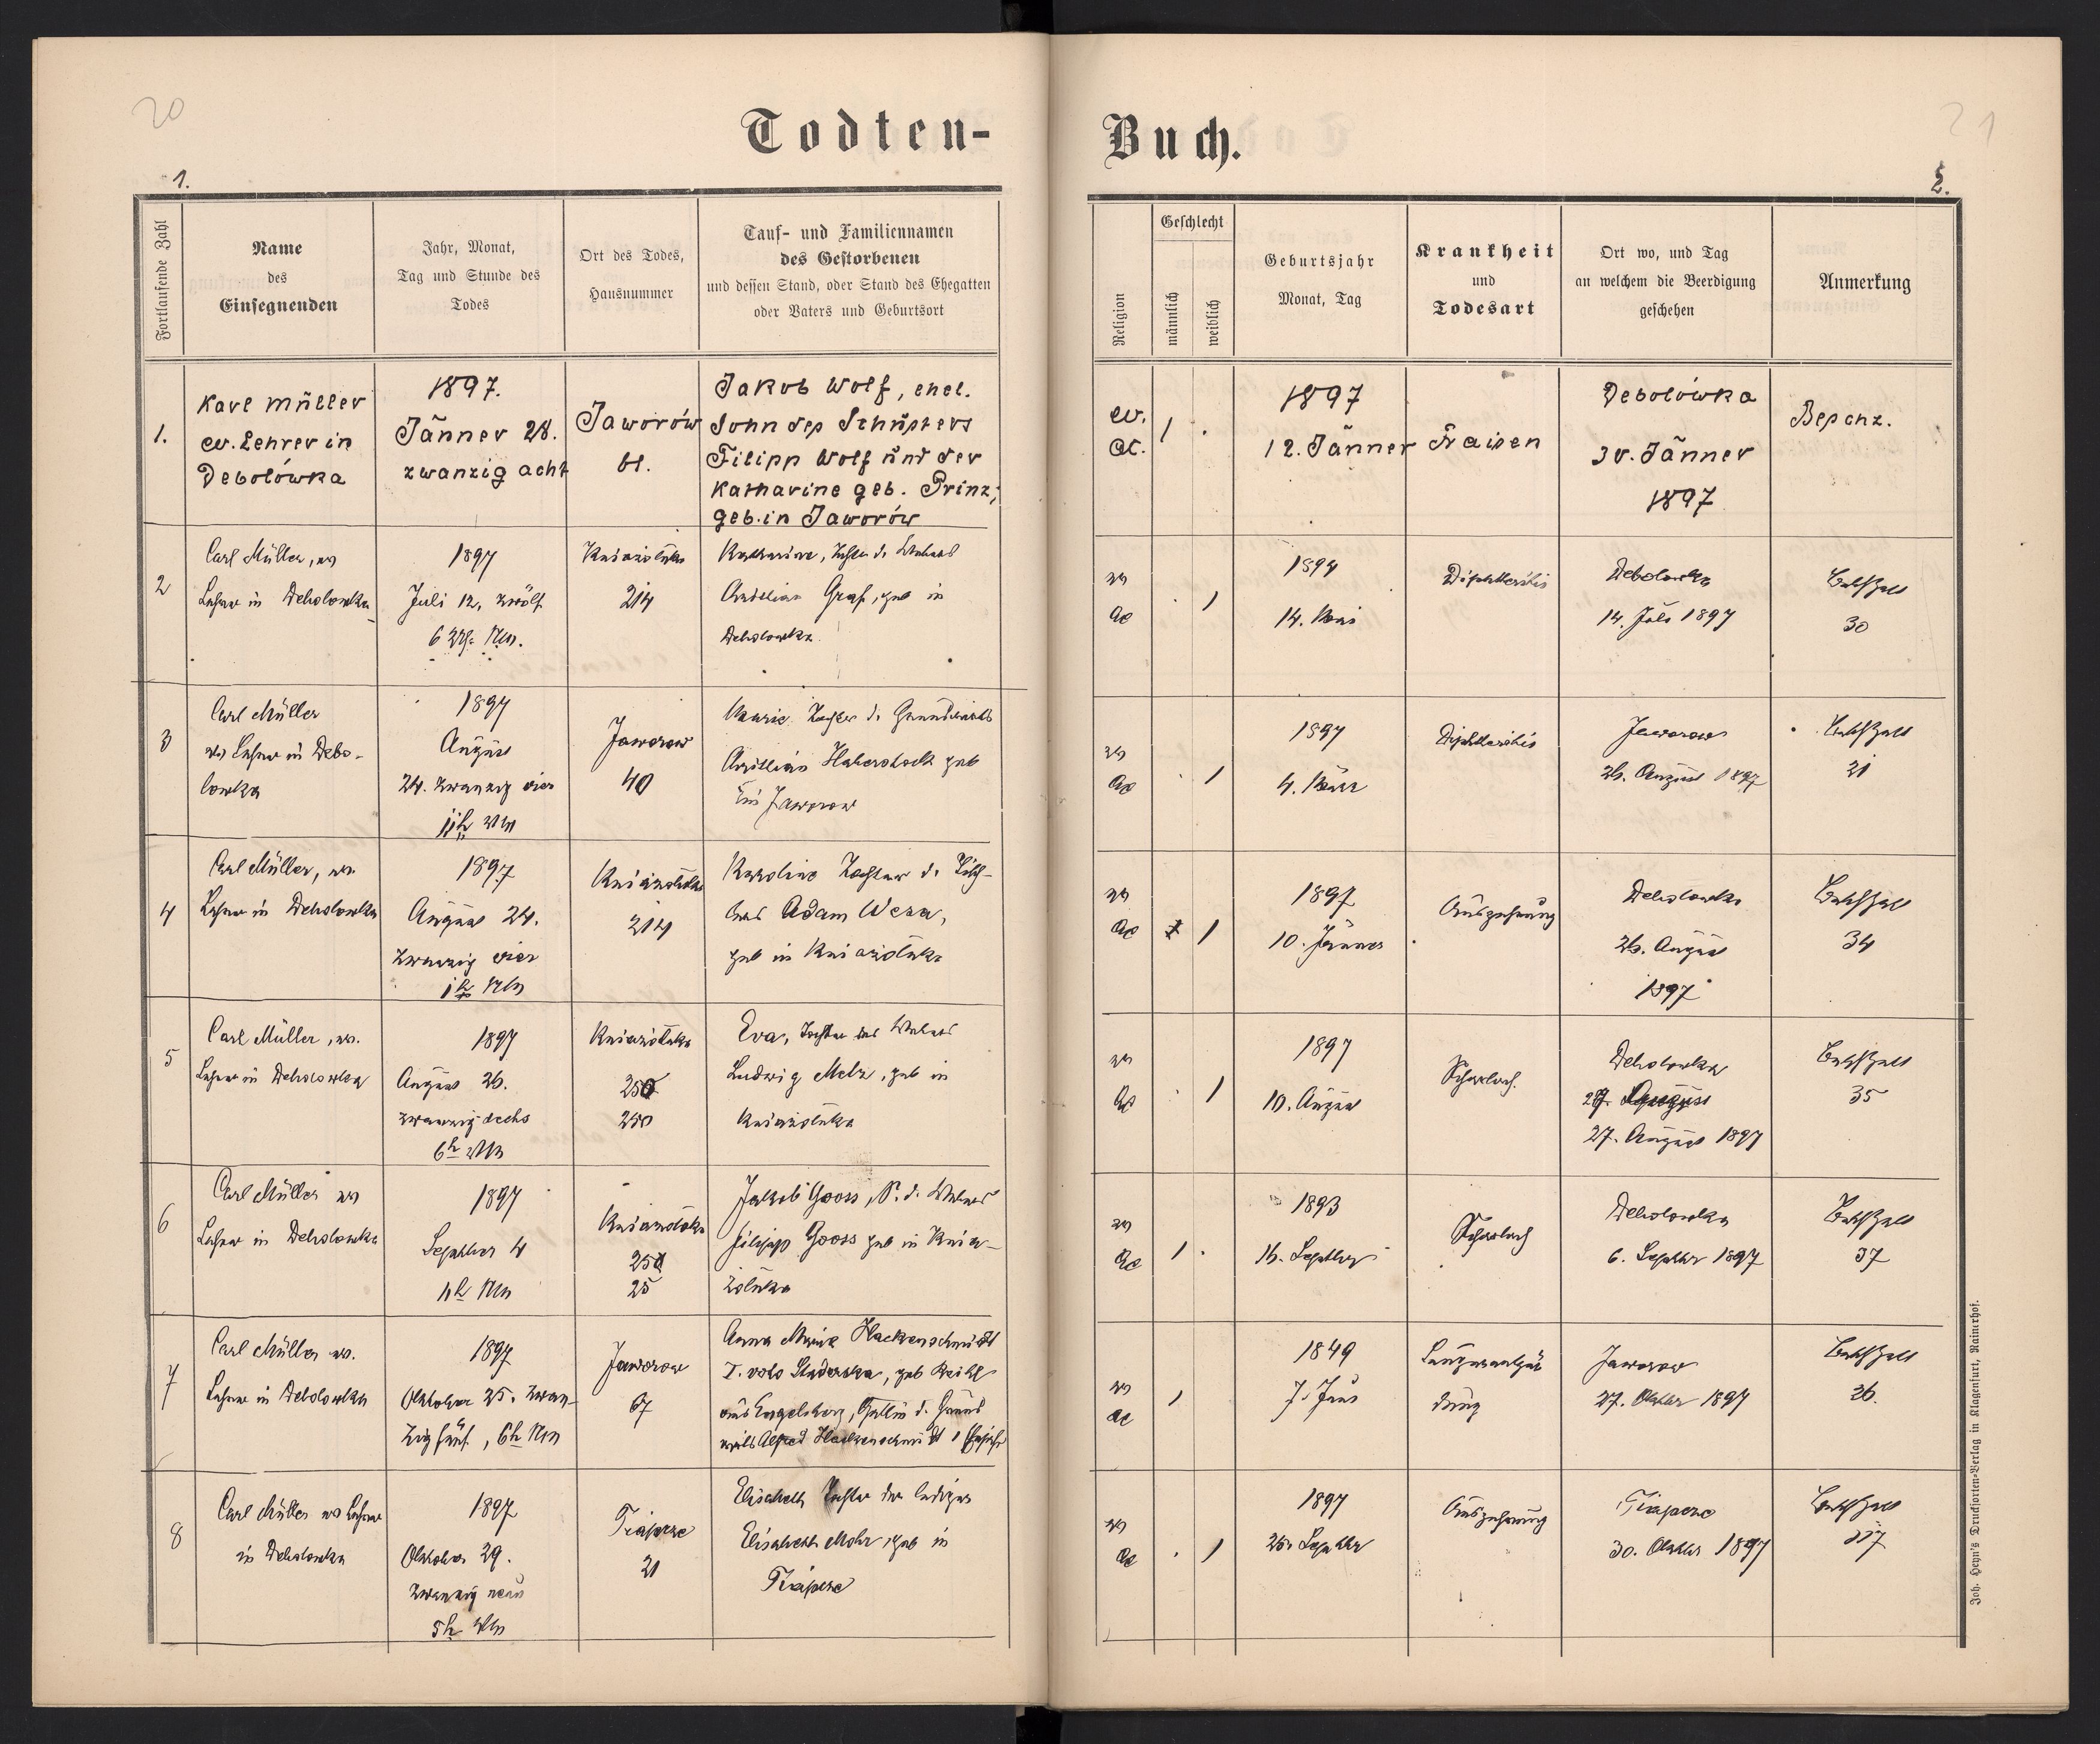 20
21
Todten-
Buch.
1.
2.
Fortlaufende Zahl
Name
des
Einsegnenden
Jahr, Monat,
Tag und Stunde des
Todes
Ort des Todes,
Hausnummer
Tauf- und Familiennamen
des Gestorbenen
und dessen Stand, oder Stand des Ehegatten
oder Vaters und Geburtsort
Religion
Geschlecht
männlich
weiblich
Geburtsjahr
Monat, Tag
Krankheit
und
Todesart
Ort wo, und Tag
an welchem die Beerdigung
geschehen
Anmerkung
1.
Karl Müller
ev. Lehrer in
Debolówka
1897.
Jänner 28.
zwanzig acht
Jaworów
61.
Jakob Wolf, ehel.
Sohn des Schusters
Filipp Wolf und der
Katharine geb. Prinz;
geb. in Jaworów
ev.
ac.
1
1897
12. Jänner
Fraisen
Debolówka
30. Jänner
1897
2
Carl Müller, ev
Lehrer in Debolowka
1897
Juli 12, zwölf
6 Nm.
214
Katharine, Tochter d.
Graf, geb in
Debolowka
ev
ac
1
14. Mai
Diphtheritis
Debolowka
14. Juli 1897
30
3
Carl Müller
ev Lehrer in Debo-
lowka
1897
August
24. zwanzig vier
11h
Jaworow
40
Marie Tochter d. Grundwirts
Haberstock geb
in Jaworow
ev
ac
1
1897
4. März
Diphtheritis
Jaworow
26. August 1897
31
4
Carl Müller, ev.
Lehrer in Debolowka
1897
August 24.
zwanzig vier
1h Nm
214
Karoline Tochter d. Tisch-
lers Adam
geb in
ev
ac
1
1897
10. Jänner
Auszehrung
Debolowka
26. August
1897
34
5
Carl Müller, ev.
Lehrer in Debolowka
1897
August 26.
zwanzig sechs
6h
250
Eva, Tochter des
Ludwig Melz, geb in
ev
ac
1
1897
10. August
Scharlach.
Debolowka
27. August 1897
35
6
Carl Müller ev
Lehrer in Debolowka
1897
Septber 4
Nm
25
Jakob Gooss, S. d.
Filipp Gooss geb in
ev
ac
1
1893
16. Septber
Scharlach
Debolowka
6. Septber 1897
37
7
Carl Müller ev.
Lehrer in Debolowka
1897
Oktober 25. zwan-
zig fünf, 6h Nm
Jaworow
67
Anna Marie Hackenschmidt
aus Engelsberg, Gattin d. Grund-
wirts Alfred Hackenschmidt
ev
ac
1
1849
7. Juni
Lungenentzün
dung
Jaworow
27. Oktober 1897
36.
8
Carl Müller ev Lehrer
in Debolowka
1897
Oktober 29.
zwanzig neun
5h
21
Elisabeth Tochter der ledigen
Elisabeth Mohr, geb in
ev
ac
1
1897
Septbr
Auszehrung
30. Oktober 1897
Joh. Heyn's Drucksorten-Verlag in Klagenfurt, Rainerhof.